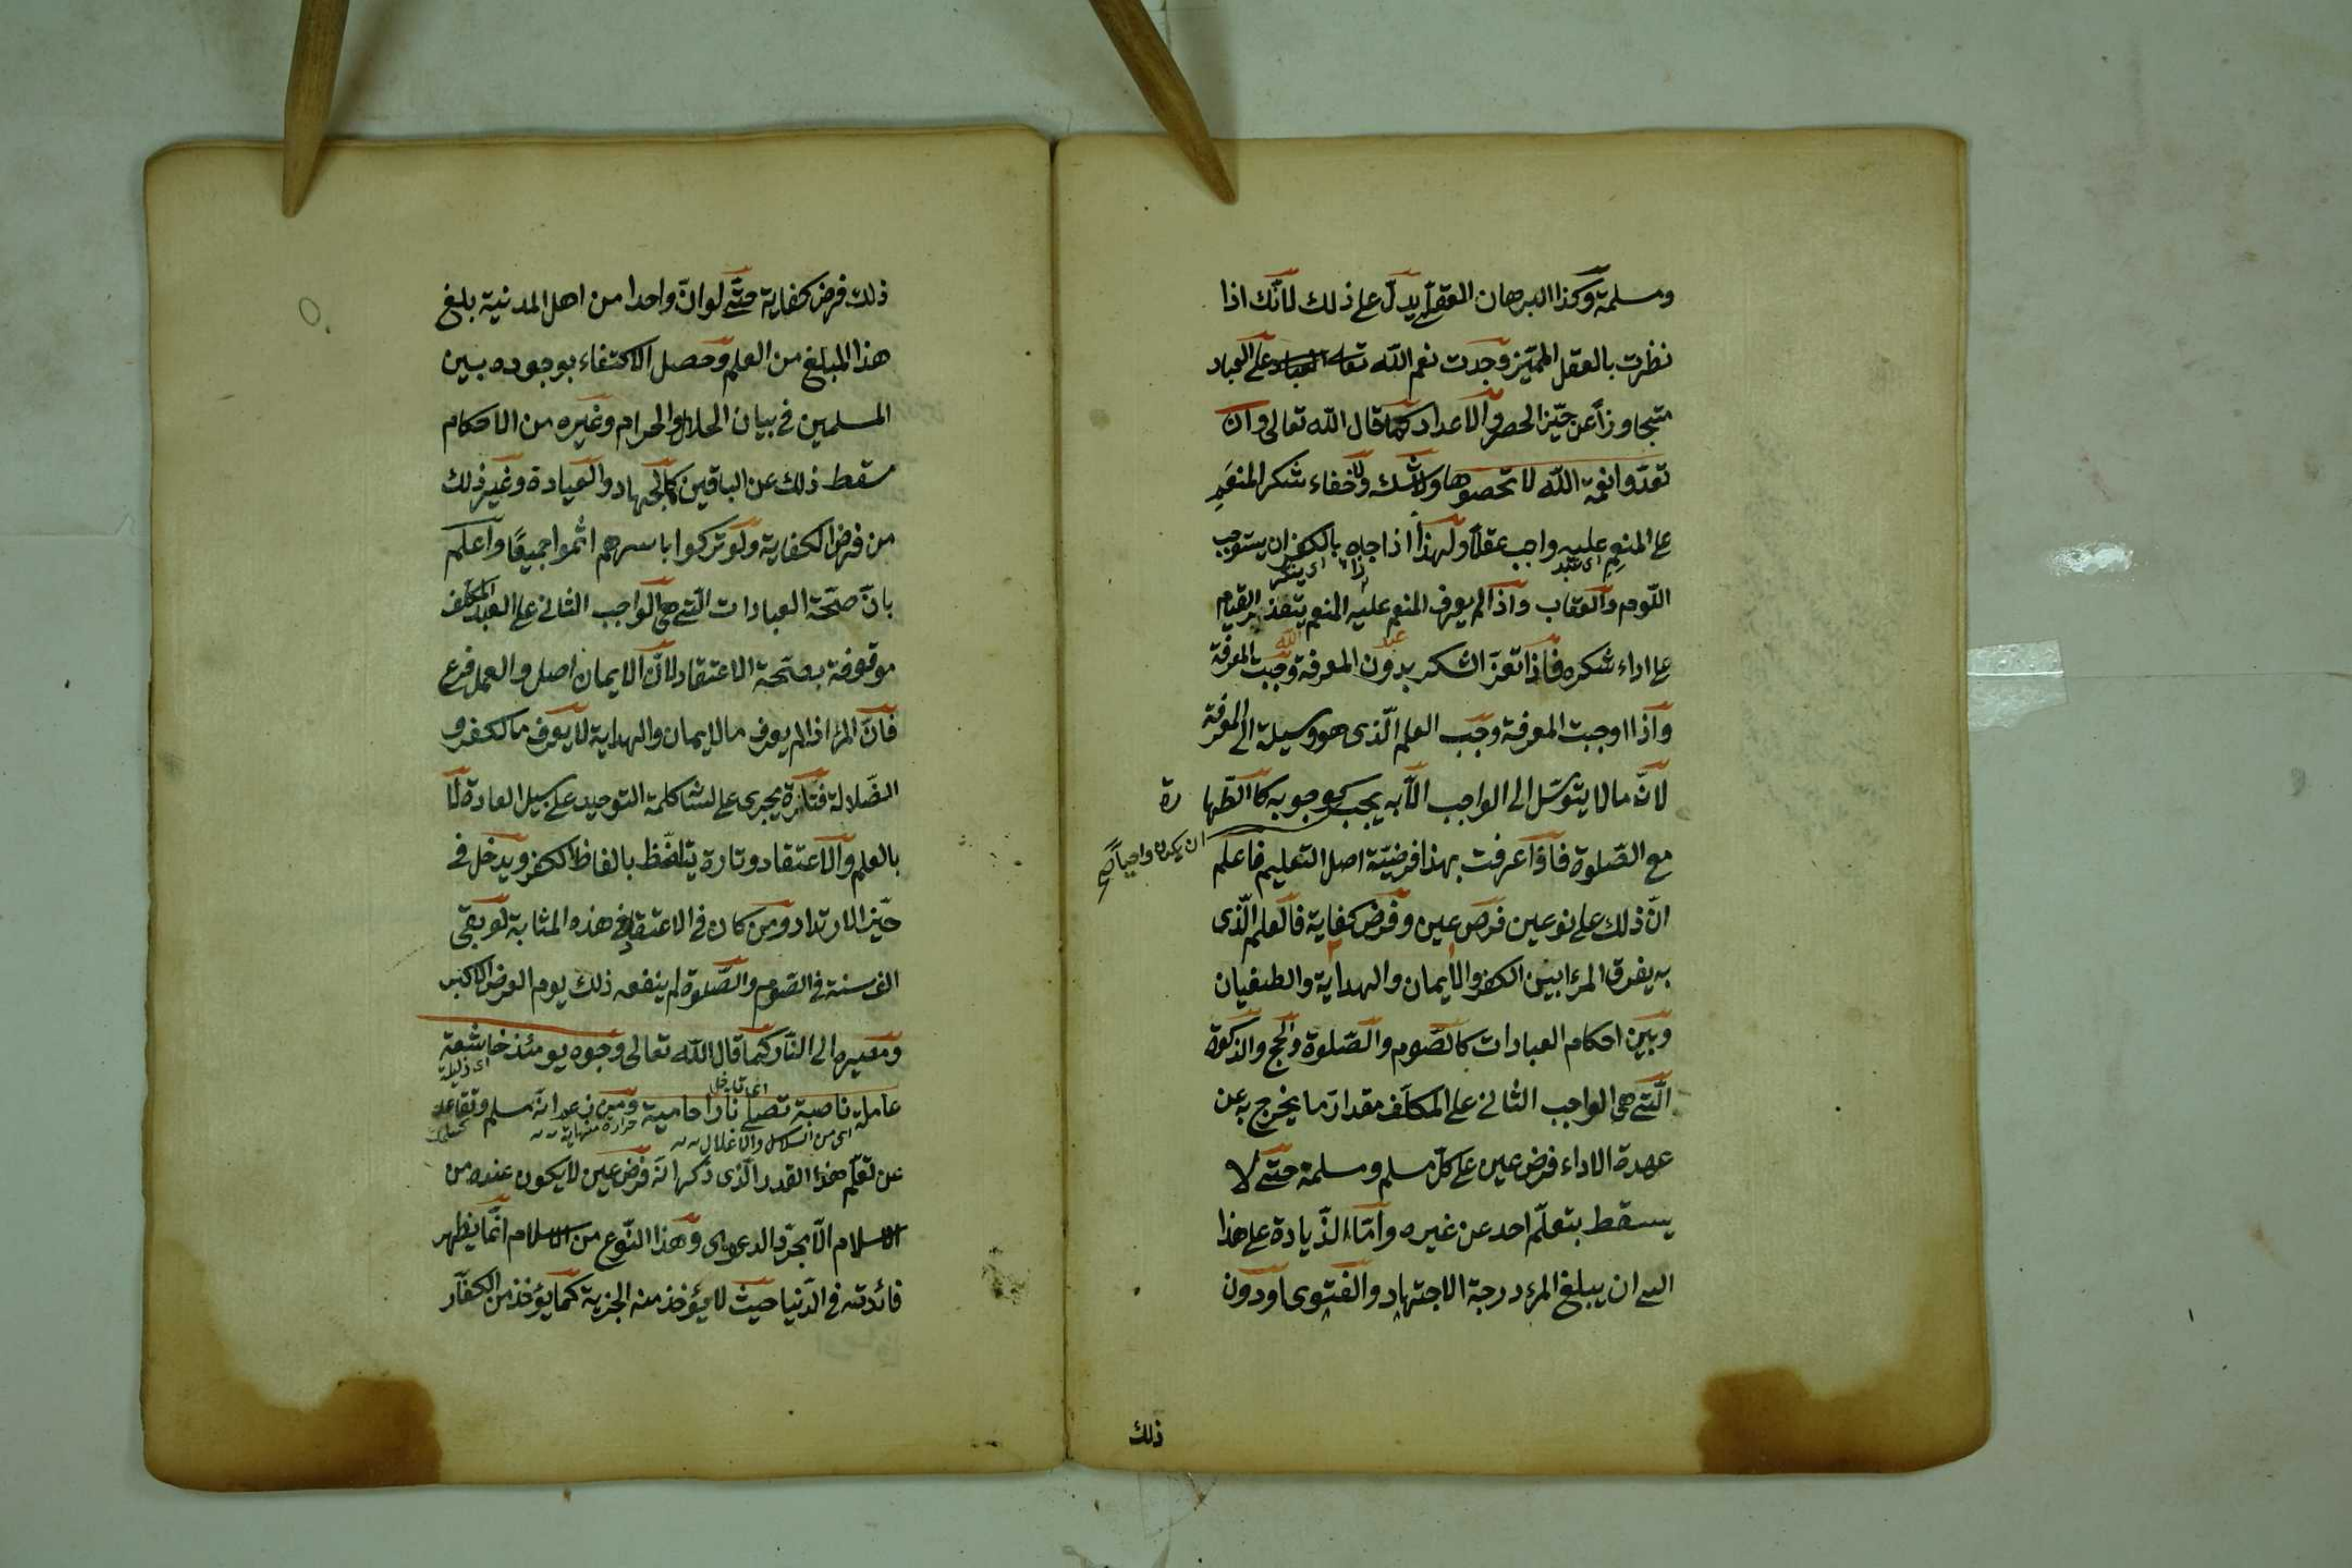 ومسلمة وكذا البرهان العقلى يدلّ على ذلك لانّك اذا
نظرت بالعقل المميّز وجدت نعم الله تعا على العباد
متجاوزاً عن حيّز الحصر والاعداد كما قال الله تعالى وان
تعدّوا نعمة الله لا تحصوها ولا شك ولا خفاء شكر المنعَم
على المنعِم عليه واجب عقلاً ولهذا اذا جاه بالكفران يستوجب
اى عبد
اى ينكر
اللّوم والعقاب واذا لم يعرف المنعم عليه المنعم يتعذر القيام
على اداء شكره فاذا تعذر الشكر بدون المعرفة وجبت المعرفة
واذا اوجبت المعرفة وجب العلم الّذى هو وسيلة الى المعرفة
لانّ ما لا يتوسّل الى الواجب الّا به يجب كوجوبه كالطّهارة
ان يكون واجباً
مع الصّلوة فاذا عرفت بهذا فرضيّة اصل التعليم فاعلم
انّ ذلك على نوعين فرض عين وفرض كفاية فالعلم الّذى
به يفرق المرء بين الكفر والايمان والهداية والطغيان
وبين احكام العبادات كالصّوم والصّلوة والحج والزكوة
الّتى هى الواجب الثانى على المكلّف مقدار ما يخرج به عن
عهدة الاداء فرض عين على كلّ مسلم ومسلمة حتّى لا
يسقط بتعلّم احد عن غيره وامّا الزّيادة على هذا
الى ان يبلغ المرء درجة الاجتهاد والفتوى او دون
ذلك
ذلك فرض كفاية حتّى لو انّ واحدا من اهل المدنية بلغ
هذا المبلغ من العلم وحصل الاكتفاء بوجوده بين
المسلمين فى بيان الحلال والحرام وغيره من الاحكام
سقط ذلك عن الباقين كالجهاد والعيادة وغير ذلك
من فرض الكفاية ولو تركوا باسرهم اثموا جميعًا واعلم
بانّ صحّة العبادات الّتى هى الواجب الثانى على العبد المكلف
موقوفة بصحّة الاعتقاد لانّ الايمان اصل والعمل فرع
فانّ المرء اذا لم يعرف ما الايمان والهداية لا يعرف ما الكفر و
الضّلالة فتارة يجرى على لسانه كلمة التوحيد على سبيل العادة لا
بالعلم والاعتقاد وتارة يتلفّظ بالفاظ الكفر ويدخل فى
حيّز الارتداد ومن كان فى الاعتقاد فى هذه المثابة لو بقى
الف سنة فى الصّوم والصّلوة لم ينفعه ذلك يوم العرض الاكبر
ومصيره الى النّار كما قال الله تعالى وجوه يومئذ خاشعة
اى ذليلة
عاملة ناصبة تصلى نارا حامية ومن زعم انّه مسلم وتقاعد
اى تدخل
حرارة منهاية
اى من السلاسل والاغلال
عن تعلّم هذا القدر الّذى ذكر انّه فرض عين لا يكون عنده من
الاسلام الّا مجرّد الدعوى وهذا النّوع من الاسلام انّما يظهر
فائدته فى الدّنيا حيث لا يؤخذ منه الجزية كما يؤخذ من الكفّار